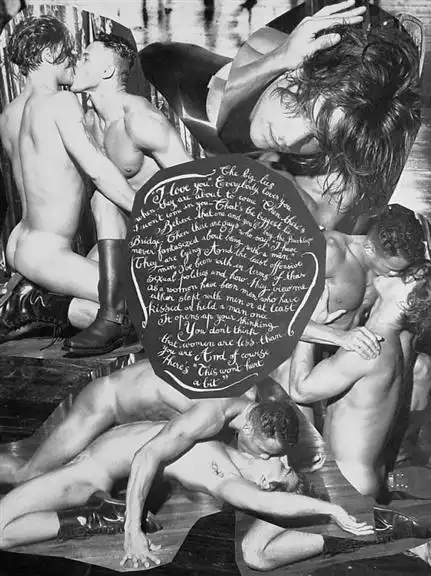 The big lies
"I love you". Everybody loves you
when they are about to come. Then there's
"I won't come in you". That's the biggest lie.
Believe that one and you get the Brooklyn
Bridge. Then there are guys who say, "I have
never fantasized about being with a man."
They are lying. And the least offensive
men I've been with in terms of their
sexual politics and how they view me
as a women have been men who have
either slept with men or
kissed or held a man once.
It opens up your thinking.
You don't think
that women are less than
you are. And of course
there's "This wont hurt
a bit."